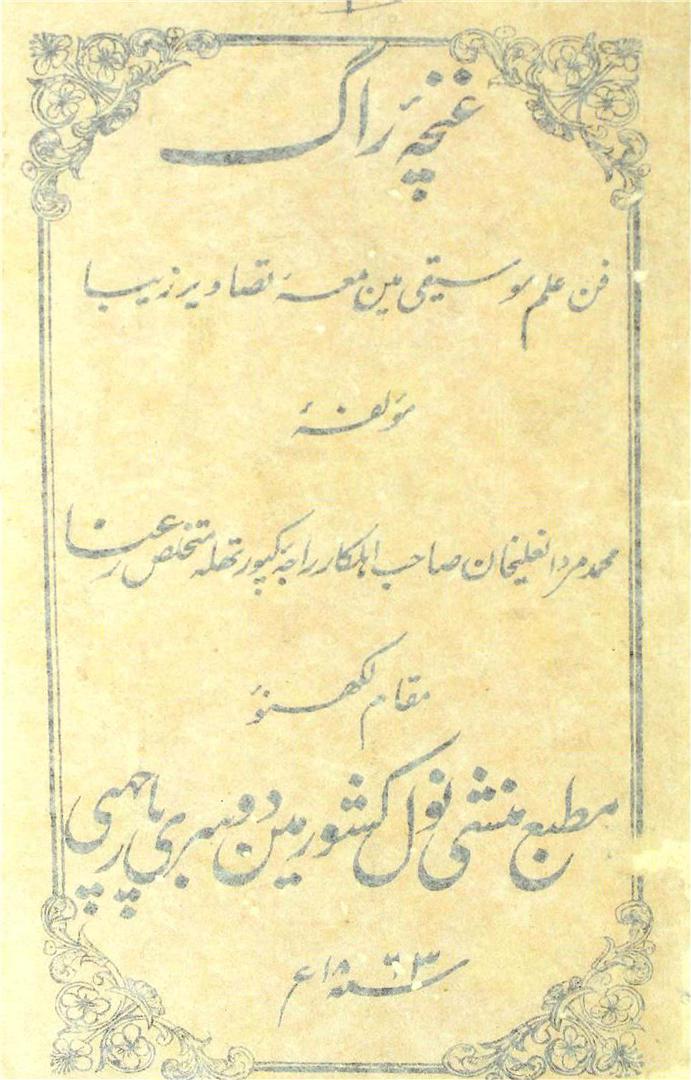 غنچۂ راگ
فن علم موسیقی مین معہ تصاویر زیبا
مؤلفۂ
محمد مردانعلیخان صاحب اہلکار راجۂ کپورتھلہ متخلص رعنا
مقام لکھنؤ
مطبع منشی نول کشور مین دوسری بار چھپی